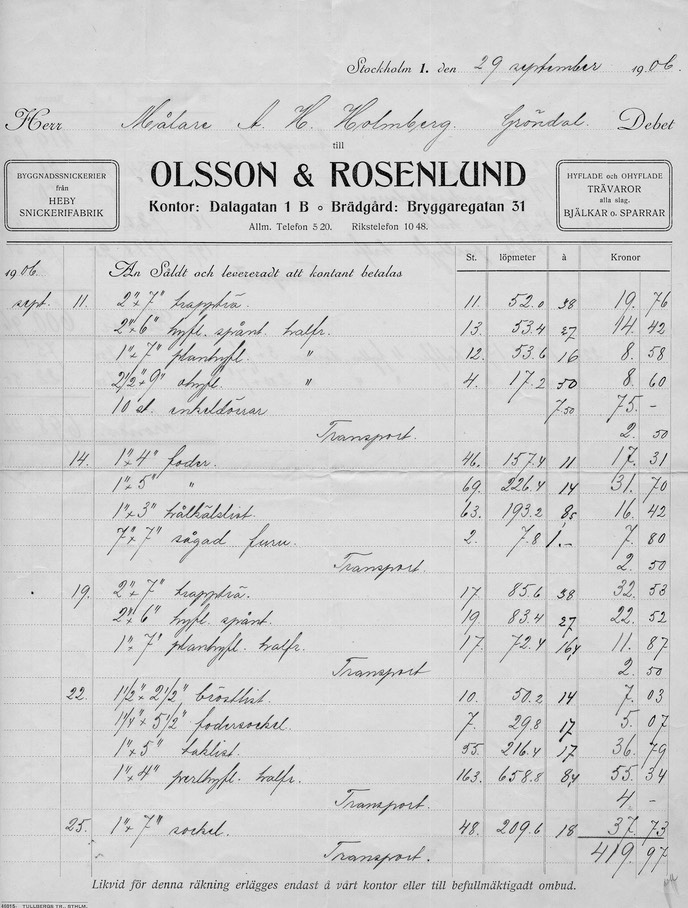 Stockholm 1. den 29 september 1906.
Herr Målare A. H. Holmberg. Gröndal. Debet
till
OLSSON & ROSENLUND
Kontor: Dalagatan 1 B ∘ Brädgård: Bryggaregatan 31
Allm. Telefon 5 20. Rikstelefon 10 48.
BYGGNADSSNICKERIER
från
HEBY
SNICKERIFABRIK
HYFLADE och OHYFLADE
TRÄVAROR
alla slag.
BJÄLKAR o. SPARRAR
1906. An Såldt och levereradt att kontant betalas St. löpmeter à Kronor
sept. 11. 2"x7" trappträ. 11. 52.0 38 19. 76
2"x6" hyfl. spånt. halfr. 13. 53.4 27 14. 42
1"x7" planhyfl. " 12. 53.6 16 8. 58
2 1/2"x9" ohyfl. " 4. 17.2 50 8. 60
10 st. enkeldörrar 7.50 75. -
Transport. 2. 50
14. 1"x4" foder. 46. 157.4 11 17. 31
1"x5" " 69. 226.4 14 31. 70
1"x3" hålkälslist. 63. 193.2 8 1/2 16. 42
7"x7" sågad furu. 2. 7.8 1.- 7. 80
Transport. 2. 50
19. 2"x7" trappträ. 17. 85.6 38 32. 53
2"x6" hyfl. spånt. 19. 83.4 27 22. 52
1"x7" planhyfl. halfr. 17. 72.4 16,4 11. 87
Transport 2. 50
22. 1 1/2"x2 1/2" bröstlist. 10. 50.2 14 7. 03
1 1/4"x5 1/2" fodersockel. 7. 29.8 17 5. 07
1"x5" taklist. 55. 216.4 17 36. 79
1"x4" perlhyfl. halfr. 163. 658.8 8,4 55. 34
Transport. 4 -
25. 1"x7" sockel. 48. 209.6 18 37. 73
Transport. 419. 97
Likvid för denna räkning erlägges endast å vårt kontor eller till befullmäktigadt ombud.
46915. TULLBERGS TR., STHLM.